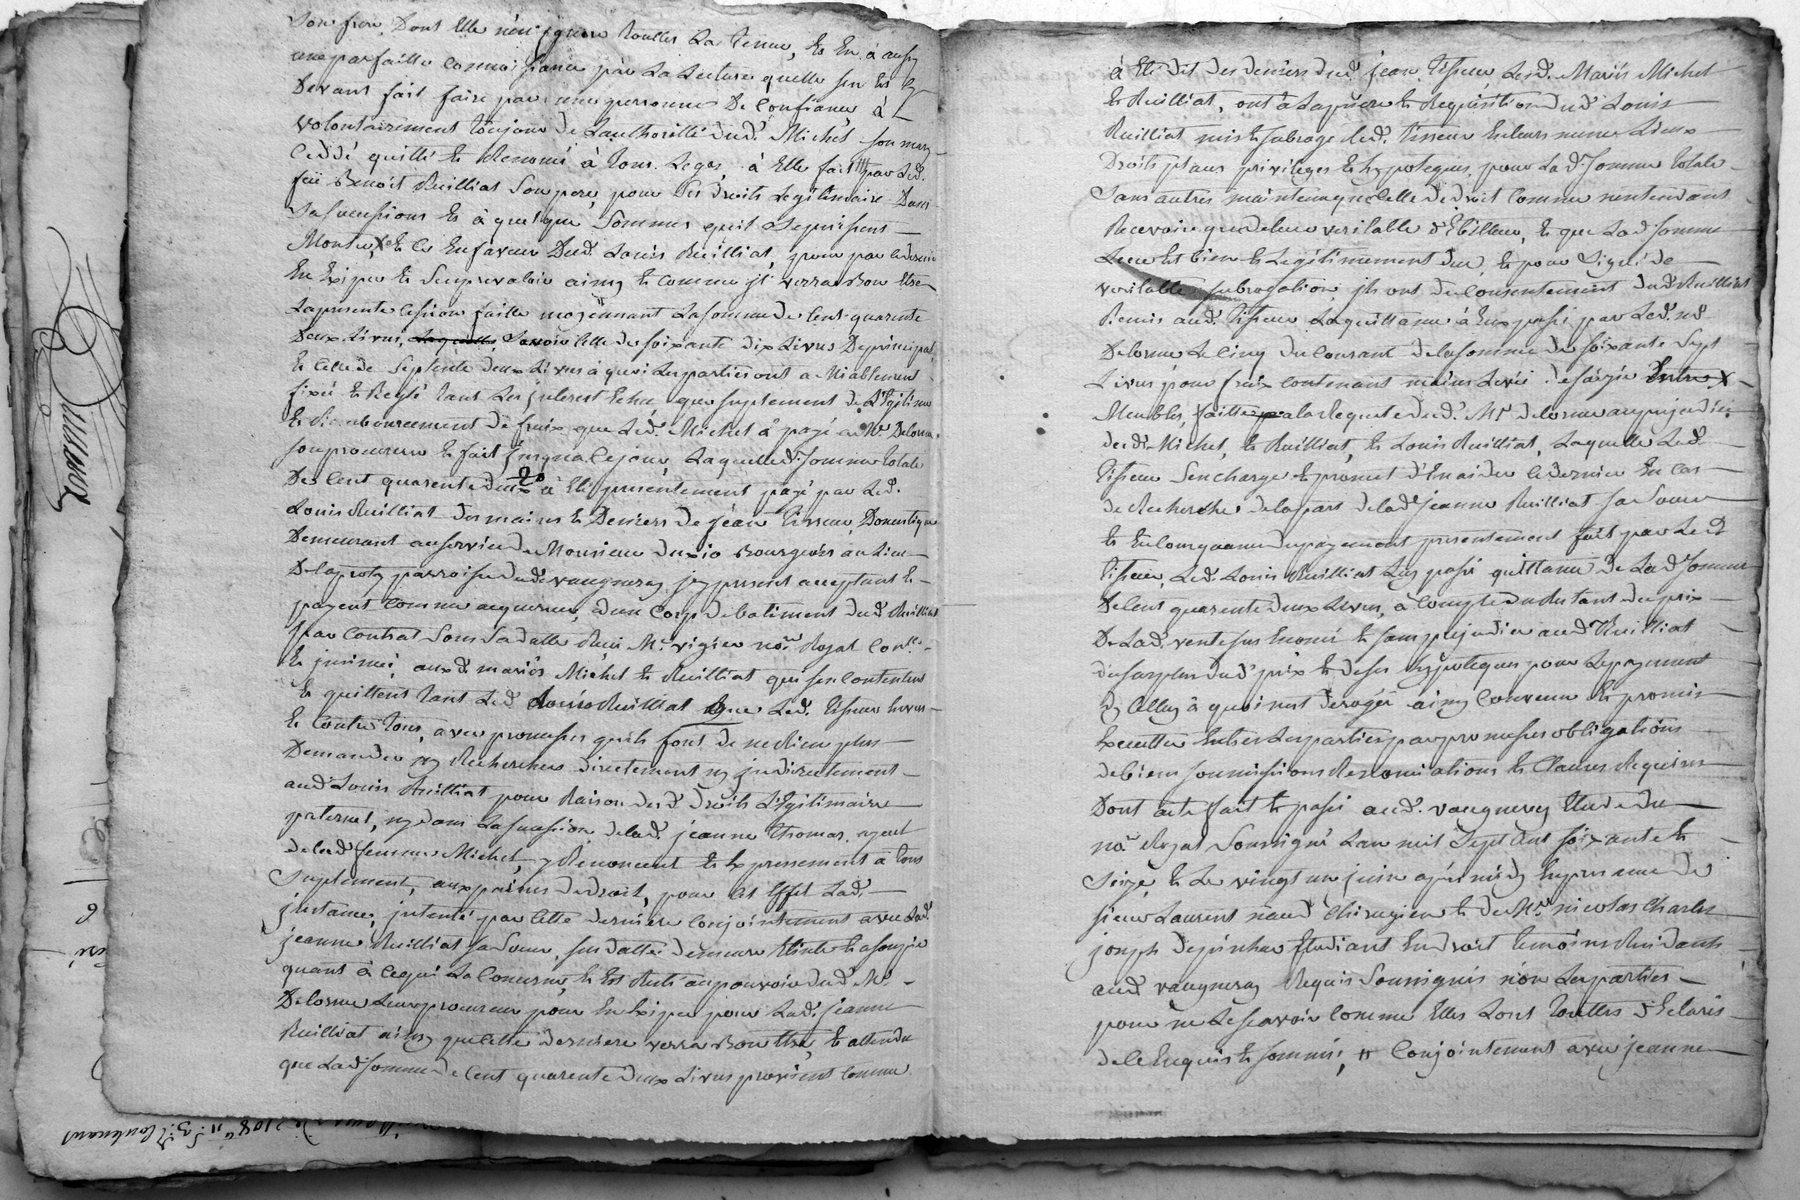 son frere, Dont Elle n'en ignore toutte la teneur, Et En à aussy
une parfaitte connoissance par la Lecture quelle sen Est cy
Devant fait faire par une personne De Confiance à
volontairement toujour de Lauthoritté dud. Michel son mary
Ceddé quitté Et Renoncé à tous Legas, à Elle fait par Led.
feu Benoit Ruilliat Son pere, pour Ses droits Legitimaire Dans
Sa succession Et à quelque Sommes quil Se puissent
Monter, Et Ce En faveur Dud. Louis Ruilliat, pour par ce dernier
En Exiger Et Senprevaloir ainsy Et comme il verra Bon Etre
La presente Cession faitte moyennant La Somme de Cent quarente
Deux Livres, Laquelle, Savoir Celle de soixante dix Livres De principal
Et Celle de Septente deux Livres à quoi Les parties ont amiablement
fixé Et Reglé tant Les interest Echu que suplement de Legitime
Et Remboursement de fraix que Led. Michel à payé au Mr. Delorme
son procureur Et fait jusqua Ce jour, Laquelle d. Somme totale
De Cent quarente deux à Eté presentement payé par Led.
Louis Ruilliat des mains Et Deniers de jean tisseur Domestique
Demeurant au service de Monsieur Bourgeois au Lieu
De paroisse dud. vaugneray icy present acceptant Et
payent Comme acquereur, d'un Corp de batiment dud. Ruilliat
par Contrat Sous Sa datte Reçu Me. vigier nore. Royal
Et jusimé, auxd. mariés Michel Et Ruilliat qui sen Contentent
Et quittent tant Led. Louis Ruilliat que Led. tisseur Envers
Et Contre tous, avec promesses quils font de ne Rien plus
Demander ny Rechercher directement ny indirectement
aud. Louis Ruilliat pour Raison desd. droits Legitimaire
paternel, ny dans La sucession de lad. jeanne thomas
de lad. femme Michel, y Renoncent Et Expressement à tous
Suplement, aux peines de droit, pour Cet Effet Lad.
jnstance, intenté par Cette derniere Conjointement avec Lad.
jeanne Ruilliat sa Soeur, sus dattée demeure Etinte Et assoupie
quant à Ce qui La Concerne, Et Est Resté au pouvoir dud. Me.
Delorme Leur procureur pour En Exiger pour Lad. jeanne
Ruilliat ainsy que Cette derniere verra Bon Etre, Et attendu
que Lad. Somme de Cent quarente deux Livres provient Comme
à Eté dit des deniers dud. jean tisseur Lesd. Mariés Michel
Et Ruilliat, ont à La priere Et Requisition dud. Louis
Ruilliat mis Et subrogé Led. tisseur En Leurs meme Lieux
Droits place privileges Et hypoteques, pour Lad. Somme totale
Sans autres maintenue que Celle de droit Comme nentendant
Recevoir que de leur veritable d'Ebitteur, Et que Lad. Somme
Leur Est bien Et Legitimement due, Et pour Signe de
veritable subrogation, ils ont du Consentement dud. Ruilliat
Remis aud. tisseur La quittance à Eux passé par Led. Me.
Delorme Le Cinq du Courant de la somme de soixante Sept
Livres pour fraix contenant main Levée Entre
Meubles, faitte a la Requete dud. Mr. delorme au prejudice
desd. Michel, Et Ruilliat, Et Louis Ruilliat, Laquelle Led.
tisseur Sen charge Et promet d'En aider Ce dernier En Cas
de Recherche de la part de lad. jeanne Ruilliat sa Soeur
Et En Consequence du payement presentement fait par Led.
tisseur, Led. Louis Ruilliat Luy passe quittance de Lad. Somme
De Cent quarente deux Livres, à Compte du Restant du prix
De Lad. vente sus Enoncé Et sans prejudice aud. Ruilliat
du surplus dud. prix Et de ses hypoteques pour Le payement
à quoi nest derogé ainsy Convenu Et promis
Executter Entre Les parties par promesses obligations
de biens soumissions Renonciations Et Clauses Requises
Dont acte fait Et passé aud. vaugneray Etude du
nore. Royal Soussigné Lan mil Sept Cent soixante Et
Seize Et Le vingt un juin après midy En presence de
sieur Laurent naud Chirurgien Et de Mr. nicolas Charles
joseph depinhac Etudiant En droit temoins Residants
aud. vaugneray Requis Soussignés non Les parties
pour ne Le scavoir Comme Elles Lont touttes d'Eclarés
de Ce Enquis Et sommés, Conjointement avec jeanne